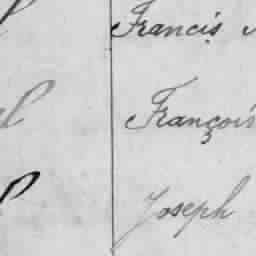 Francis
François
Joseph